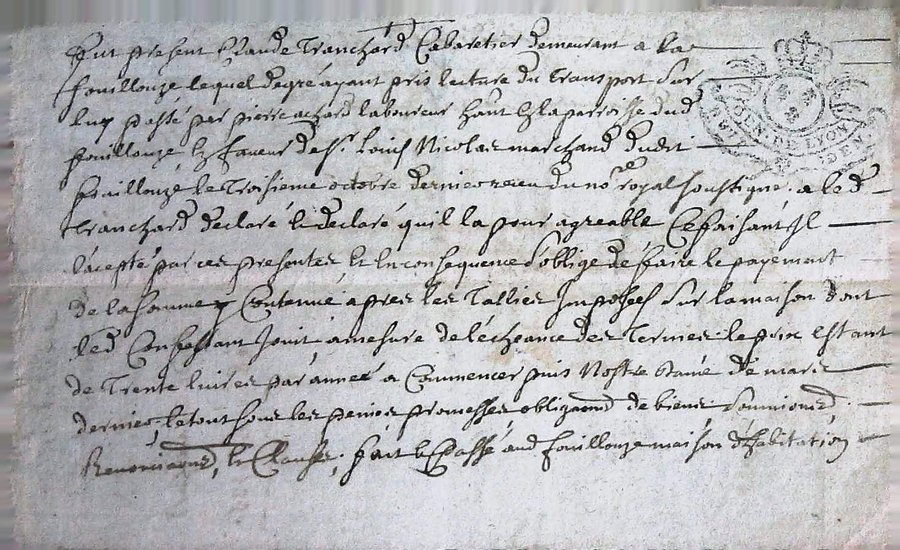 Fut present Claude Tranchard Cabaretier demeurant a la
fouillouze lequel degré ayant pris lecture du transport sur
luy passé par pierre achard laboureur h̃ant ez la parroisse dud
fouillouze En faveur de sr. Louis Nicolas marchand dudit
fouillouze le Troisieme octobre dernier receu du nore royal soustigné a led
tranchard declaré et declare quil la pour agreable Ce faisant Jl
lacepté par ces presentes Et En consequence soblige de faire le payement
de la somme y Contenue apres les Tallies Imposées sur la maison dont
led Confessant Jouit a mesure de lécheance des Termes le prix Estant
de Trente livres par année a Commencer puis Nostre dame de mars
dernier le tout sous les peines promesses obligaons de biens soumions,
Renonciaons, et Clauses, fait Et passé aud fouillouze maison d'habitation
GEN. DE LYON